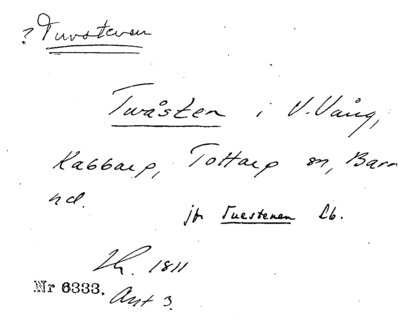 ? Tuvsteven
Tuvåsten i V. Vång,
Kabbarp, Tottarp sn, Bara
hd.
jfr Tuvstenen Lb.
Lh. 1811
Nr 6333. Akt 3.